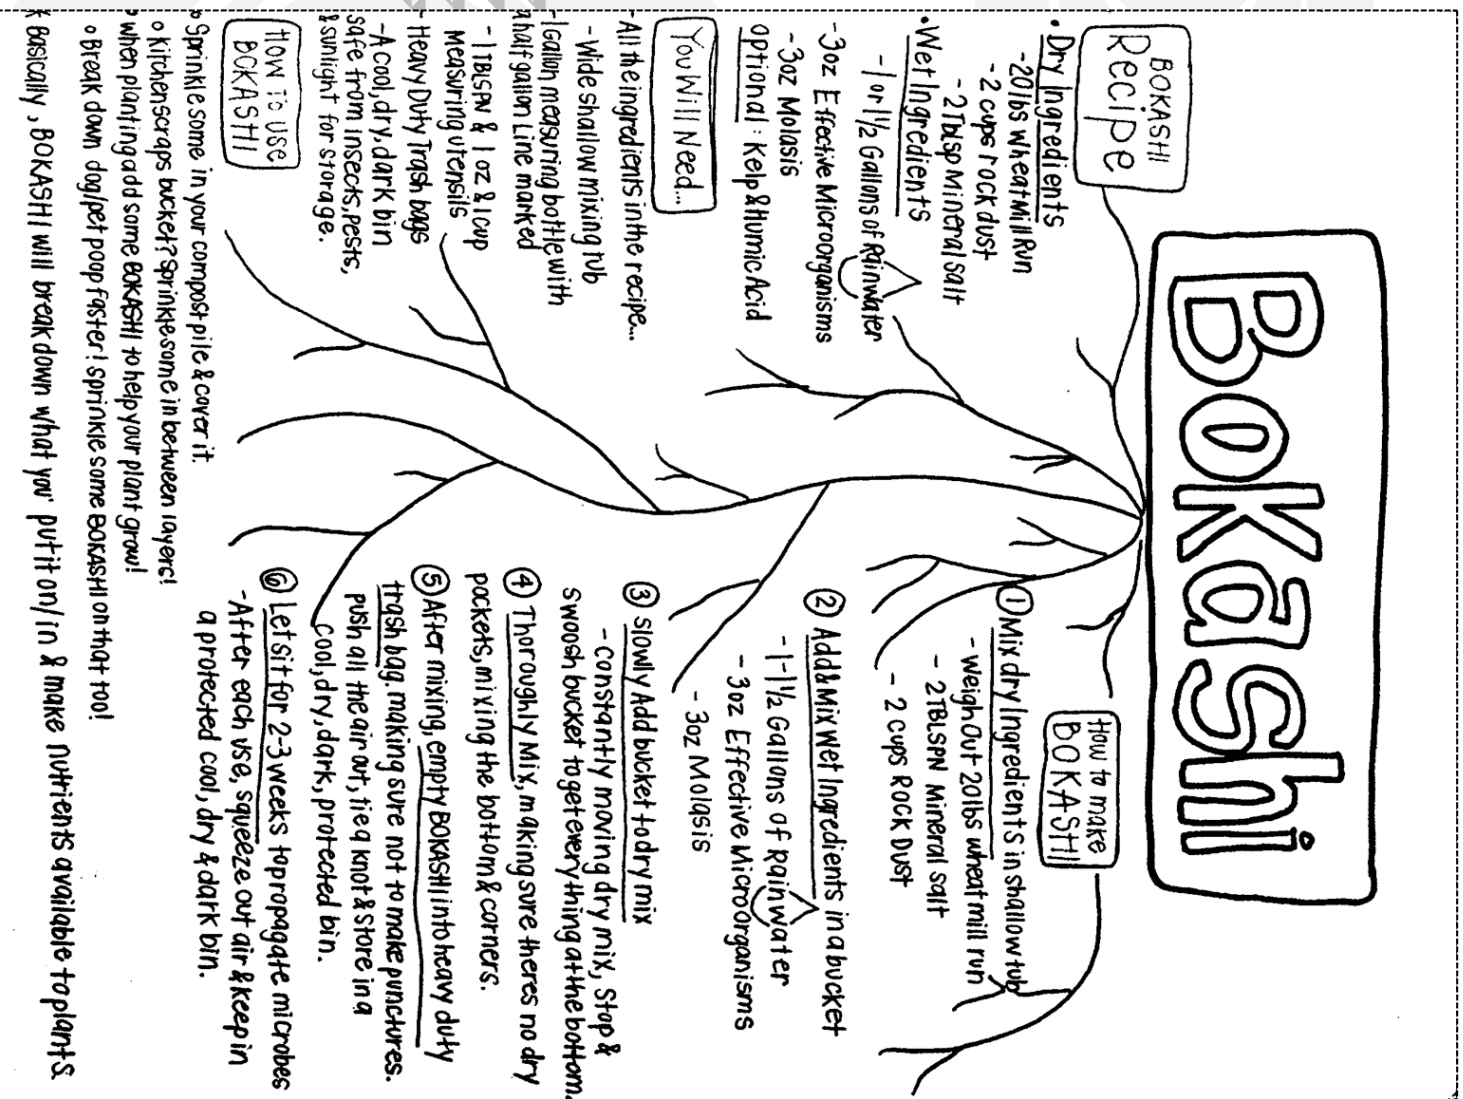 Bokashi
BOKASHI
Recipe
• Dry Ingredients
- 20lbs Wheat Mill Run
- 2 cups rock dust
- 2 Tblsp Mineral salt
• Wet Ingredients
- 1 or 1 1/2 Gallons of Rainwater
- 3oz Effective Microorganisms
- 3oz Molasis
Optional: Kelp & Humic Acid
You Will Need...
- All the ingredients in the recipe...
- Wide shallow mixing tub
- 1 Gallon measuring bottle with
a half gallon Line marked
- 1 TBLSPN & 1 oz & 1 cup
Measuring utensils
- Heavy Duty Trash bags
- A cool, dry, dark bin
safe from insects, pests,
& sunlight for storage.
HOW TO USE
BOKASHI
o Sprinkle some in your compost pile & cover it.
o Kitchen scraps bucket? Sprinkle some in between layers!
o When planting add some BOKASHI to help your plant grow!
o Break down dog/pet poop faster! Sprinkle some BOKASHI on that too!
* Basically, BOKASHI will break down what you put it on/in & make nutrients available to plants.
How to make
BOKASHI
① Mix dry Ingredients in shallow tub
- Weigh Out 20lbs wheat mill run
- 2TBLSPN Mineral salt
- 2 cups Rock Dust
② Add & Mix Wet Ingredients in a bucket
- 1-1 1/2 Gallons of Rainwater
- 3oz Effective Microorganisms
- 3oz Molasis
③ Slowly Add bucket to dry mix
- constantly moving dry mix, Stop &
swoosh bucket to get everything at the bottom.
④ Thoroughly Mix, making sure theres no dry
pockets, mixing the bottom & corners.
⑤ After mixing, empty BOKASHI into heavy duty
trash bag. making sure not to make punctures.
push all the air out, tie a knot & store in a
cool, dry, dark, protected bin.
⑥ Let sit for 2-3 weeks to propagate microbes
- After each use, squeeze out air & keep in
a protected cool, dry & dark bin.